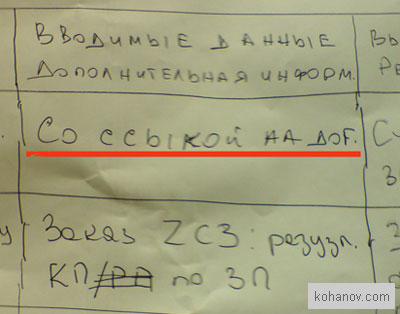 ВВОДИМЫЕ ДАННЫЕ
ДОПОЛНИТЕЛЬНАЯ ИНФОРМ.
Вы
Ре
СО ССЫКОЙ НА ДОГ.
С
З
у
Заказ ZC3: разузл.
З
КП/РД по ЗП
kohanov.com